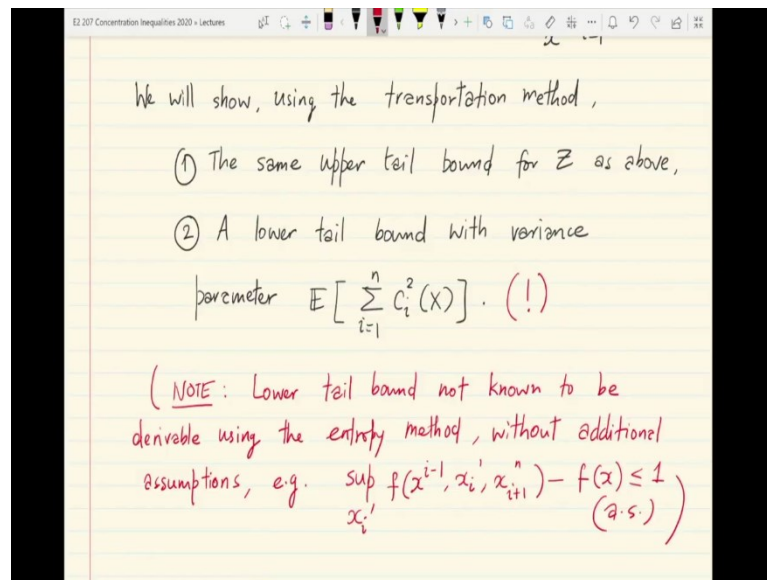 E2 207 Concentration Inequalities 2020 » Lectures
We will show, using the transportation method,
① The same upper tail bound for Z as above,
② A lower tail bound with variance
parameter E[ ∑_{i=1}^{n} c_i^2(X) ] . (!)
( NOTE : Lower tail bound not known to be
derivable using the entropy method, without additional
assumptions, e.g. sup_{x_i'} f(x^{i-1}, x_i', x_{i+1}^n) - f(x) ≤ 1
(a.s.) )